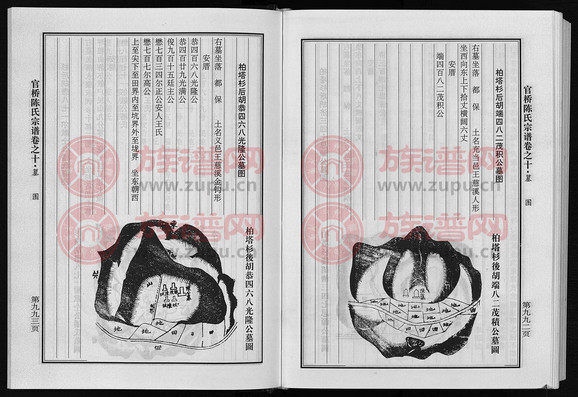 官桥陈氏宗谱卷之十·墓图
第九九二页
柏塔杉后胡端四八二茂积公墓图
右墓坐落 都 保 土名充当邑王慈溪人形
坐西向东上下拾丈横阔六丈
安厝
端四百八二茂积公
柏塔杉後胡端八二茂積公墓圖
地 地 地 地 地 地 田 田
柏塔杉后胡恭四六八光隆公墓图
右墓坐落 都 保 土名义邑王慈溪金钩形
安厝
恭四百六八光隆公
恭四百廿九光满公
俊九百十五廷主公
懋七百三四尔正公安人王氏
懋七百七尔高公
上至尖下至田界内至坑界外至垅界 坐东朝西
柏塔杉後胡恭四六八光隆公墓圖
山
地 地 地 田 田 田
官桥陈氏宗谱卷之十·墓图
第九九三页
族谱网
www.zupu.cn
族谱网
www.zupu.cn
族谱网
www.zupu.cn
族谱网
www.zupu.cn